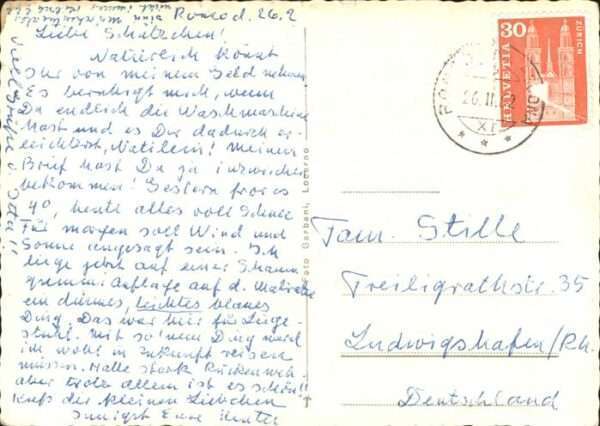 Ronco d. 26.2
Liebe Schätzchen!
Natürlich könnt
Ihr von meinem Geld nehmen
Es beruhigt mich, wenn
Du endlich die Waschmaschine
hast und es Dir dadurch er-
leichterst, Natilein! Meinen
Brief hast Du ja inzwischen
bekommen! Gestern fror es
4°, heute alles voll Schnee
Für morgen soll Wind und
Sonne angesagt sein. Ich
liege jetzt auf einer Schaum
gummi Auflage auf d. Matratze
ein dünnes, leichtes blaues
Ding. Das war hier für Liege-
stuhl. Mit so'nem Ding werd
ich wohl in Zukunft reisen
müssen. Hatte stark Rückenweh-
aber trotz allem ist es schön!
Küß der kleinen Liebchen
Innigst Eure Mutter
Viele Grüße v.
Foto Garbani, Locarno
30
HELVETIA
ZÜRICH
26.II.62
XI
Fam. Stille
Freiligrathstr. 35
Ludwigshafen/Rh.
Deutschland